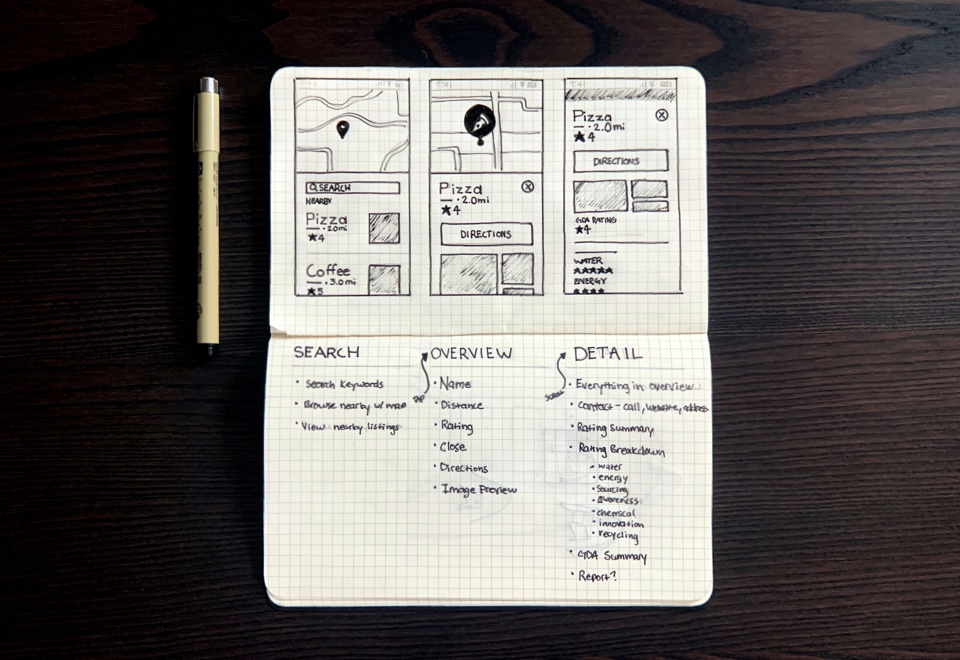 Q SEARCH
NEARBY
Pizza
— · 2.0mi
★4
Coffee
— · 3.0mi
★5
Pizza
— · 2.0mi
★4
DIRECTIONS
Pizza
— · 2.0mi
★4
DIRECTIONS
GDA RATING
★4
WATER
★★★★★
ENERGY
★★★★
SEARCH
• Search Keywords
• Browse nearby w/ map
• View nearby listings
TAP
OVERVIEW
• Name
• Distance
• Rating
• Close
• Directions
• Image Preview
SCROLL
DETAIL
• Everything in overview
• Contact - call, website, address
• Rating Summary
• Rating Breakdown
• water
• energy
• Sourcing
• Awareness
• chemical
• innovation
• recycling
• GDA Summary
• Report?